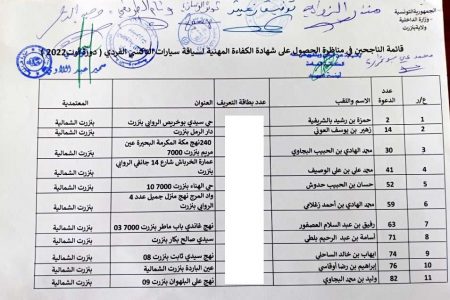 الجمهورية التونسية
وزارة الداخلية
ولاية بنزرت
قائمة الناجحين في مناظرة الحصول على شهادة الكفاءة المهنية لسياقة سيارات التاكسي الفردي ( دورة أوت 2022 )
ع/ر عدد الدعوة الاسم واللقب عدد بطاقة التعريف العنوان المعتمدية
1 2 حمزة بن رشيد بالشريفية حي سيدي بوخريص الروابي بنزرت بنزرت الشمالية
2 14 زهير بن يوسف العوني دار الرمل بنزرت بنزرت الشمالية
3 30 محمد الهادي بن الحبيب البجاوي 240نهج مكة المكرمة البحيرة عين مريم بنزرت 7000 بنزرت الشمالية
4 41 محمد علي بن علي الوصيف عمارة الخرباش شارع 14 جانفي الروابي بنزرت بنزرت الشمالية
5 52 حسان بن الحبيب حدوش حي الهناء بنزرت 7000 10 بنزرت الشمالية
6 59 محمد الهادي بن أحمد زغلامي واد المرج نهج منزل جميل عدد 4 الروابي بنزرت بنزرت الشمالية
7 63 رفيق بن عبد السلام العصفور نهج غاندي باب ماطر بنزرت 7000 03 بنزرت الشمالية
8 71 أسامة بن عبد الرحيم بلطي سيدي صالح بكار بنزرت بنزرت الشمالية
9 74 ايهاب بن خالد الساحلي نهج سيدي ثابت بنزرت 08 بنزرت الشمالية
10 76 ابراهيم بن رضا أوقاسي عين الباردة بنزرت الشمالية بنزرت الشمالية
11 82 وليد بن محمد البجاوي نهج علي البلهوان بنزرت 09 بنزرت الشمالية